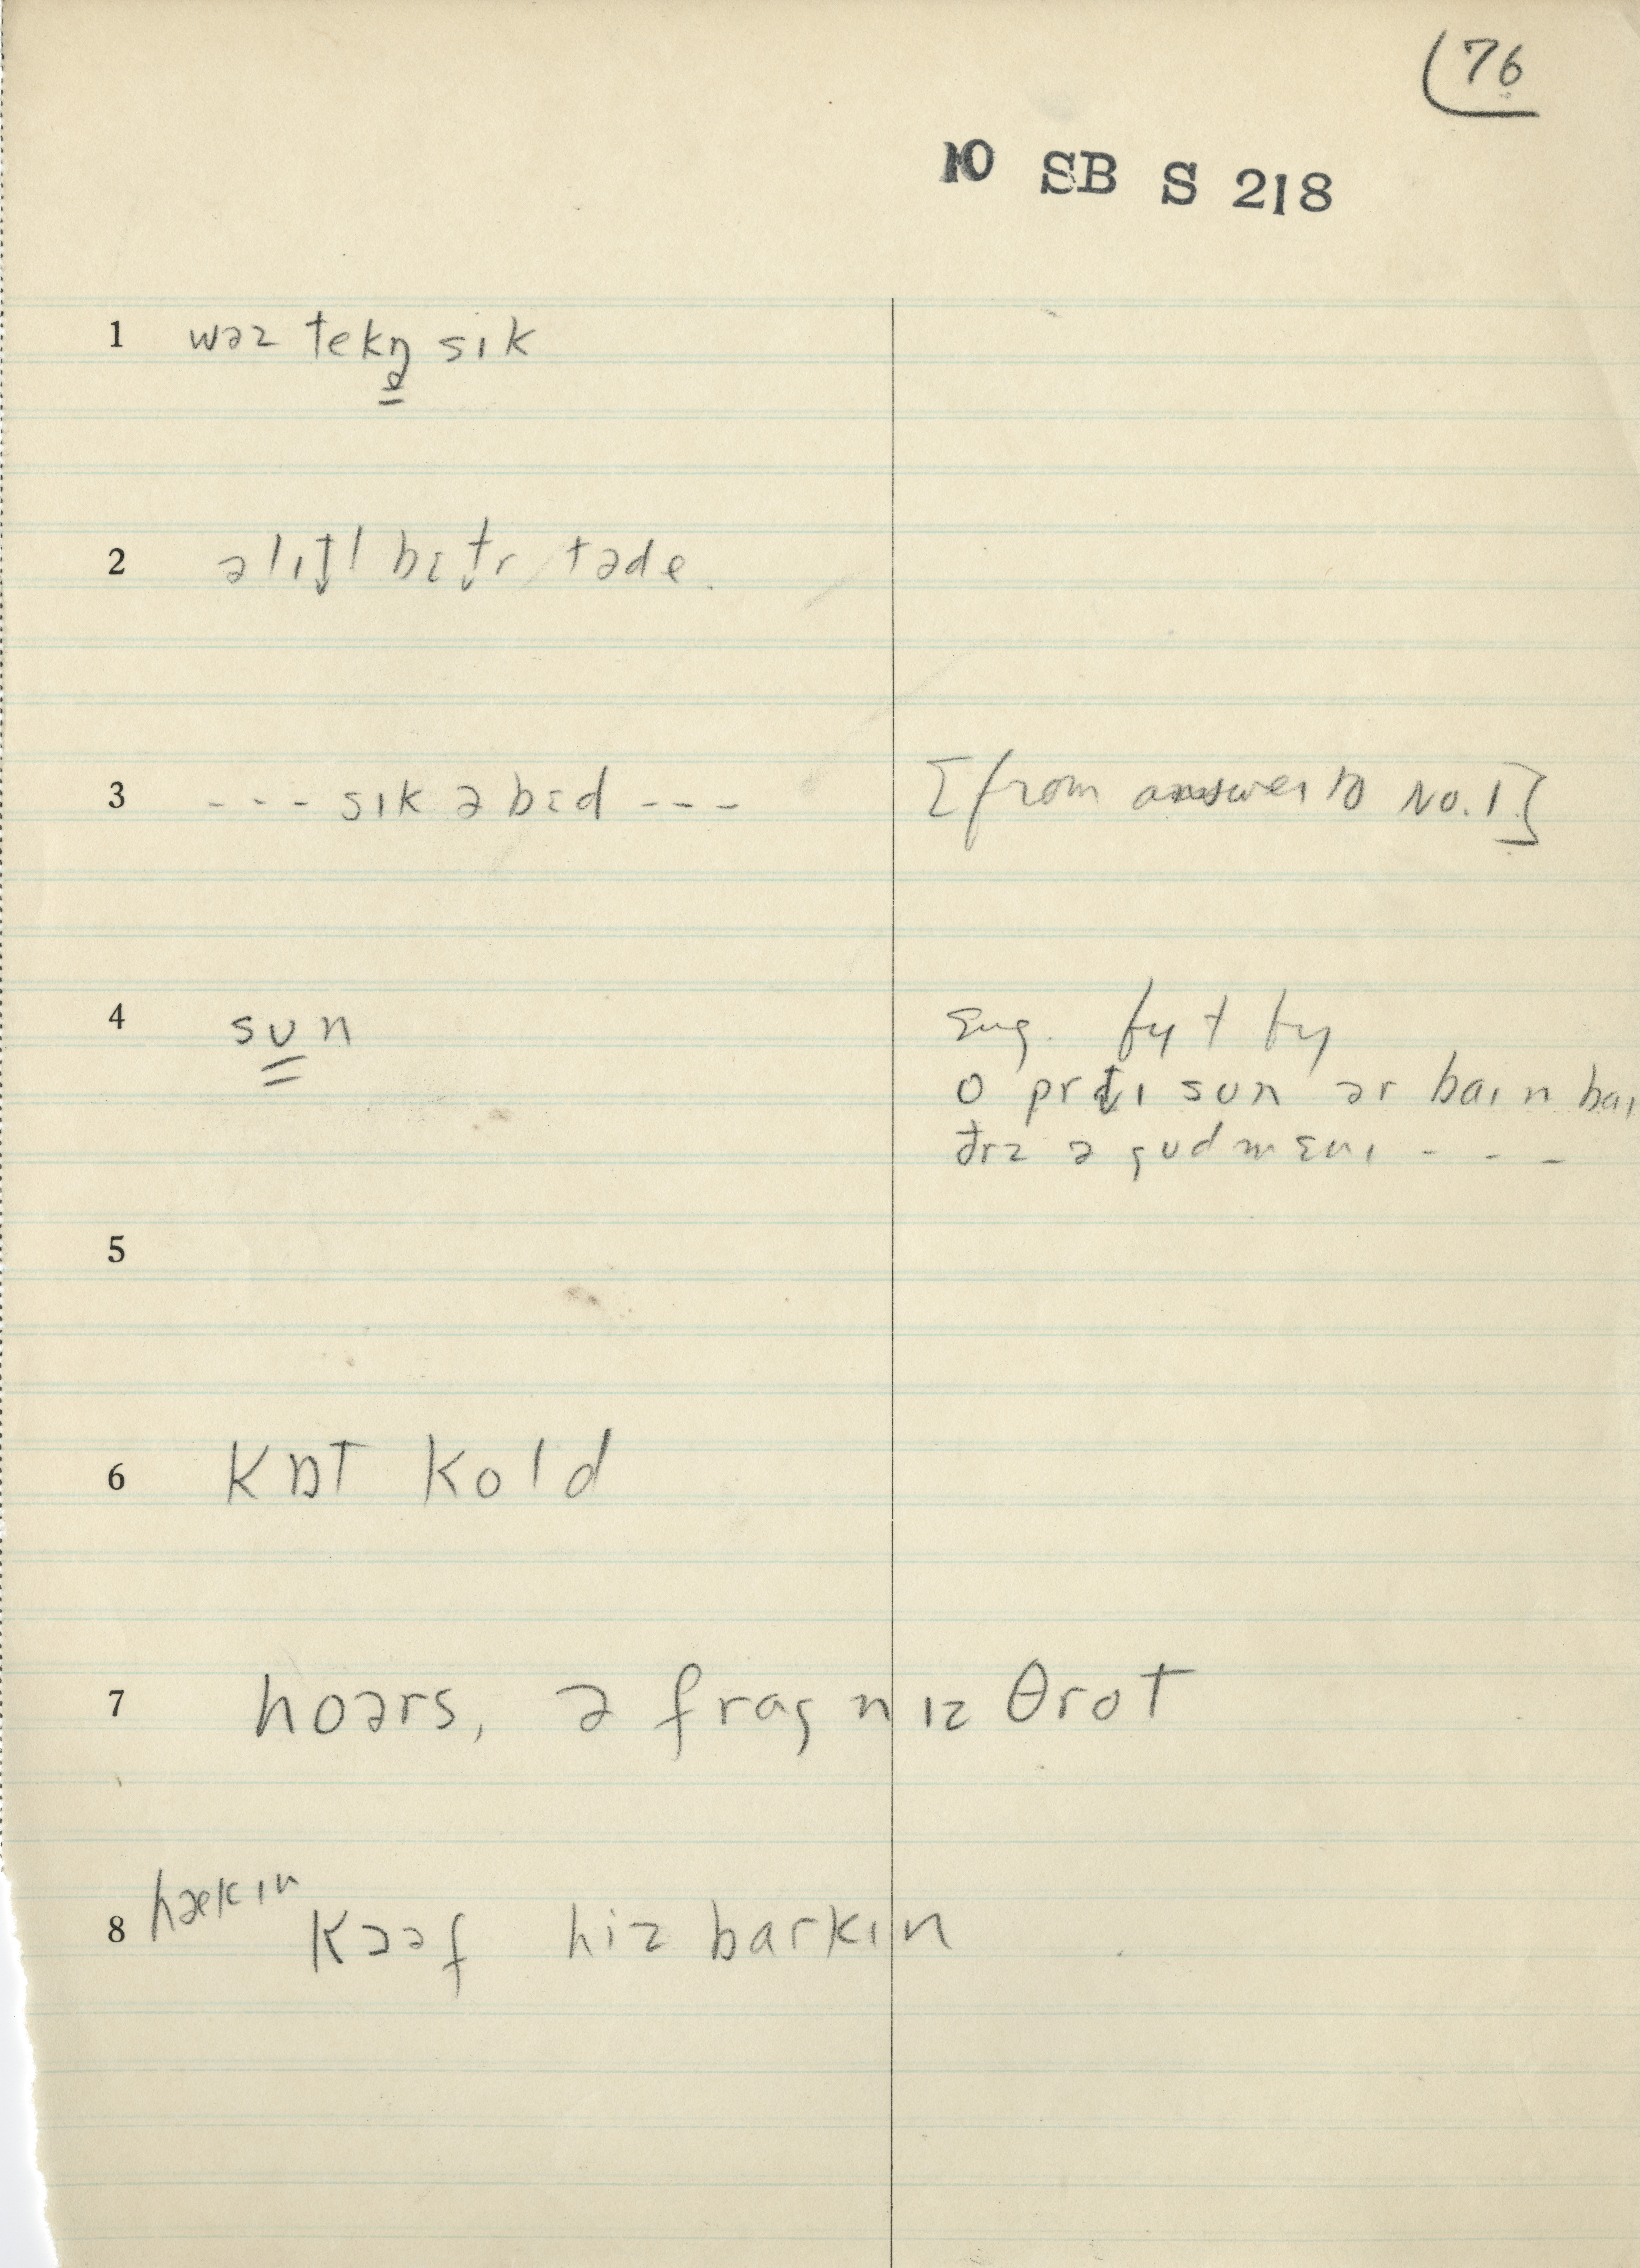 76
10 SB S 218
1 wəz tekŋ̩ sɪk
2 ə lɪt̬l bɛt̬r təde
3 - - - sɪk ə bɛd - - - [from answer to No. 1]
4 sʊn
o prɪt̬ɪ sʊn ər baɪn baɪ
ðrz ə gʊd mɛnɪ - - -
5
6 kɒt kold
7 hoərs, ə frɑg n ɪz θrot
8 hækɪn kɔəf hiz barkɪn